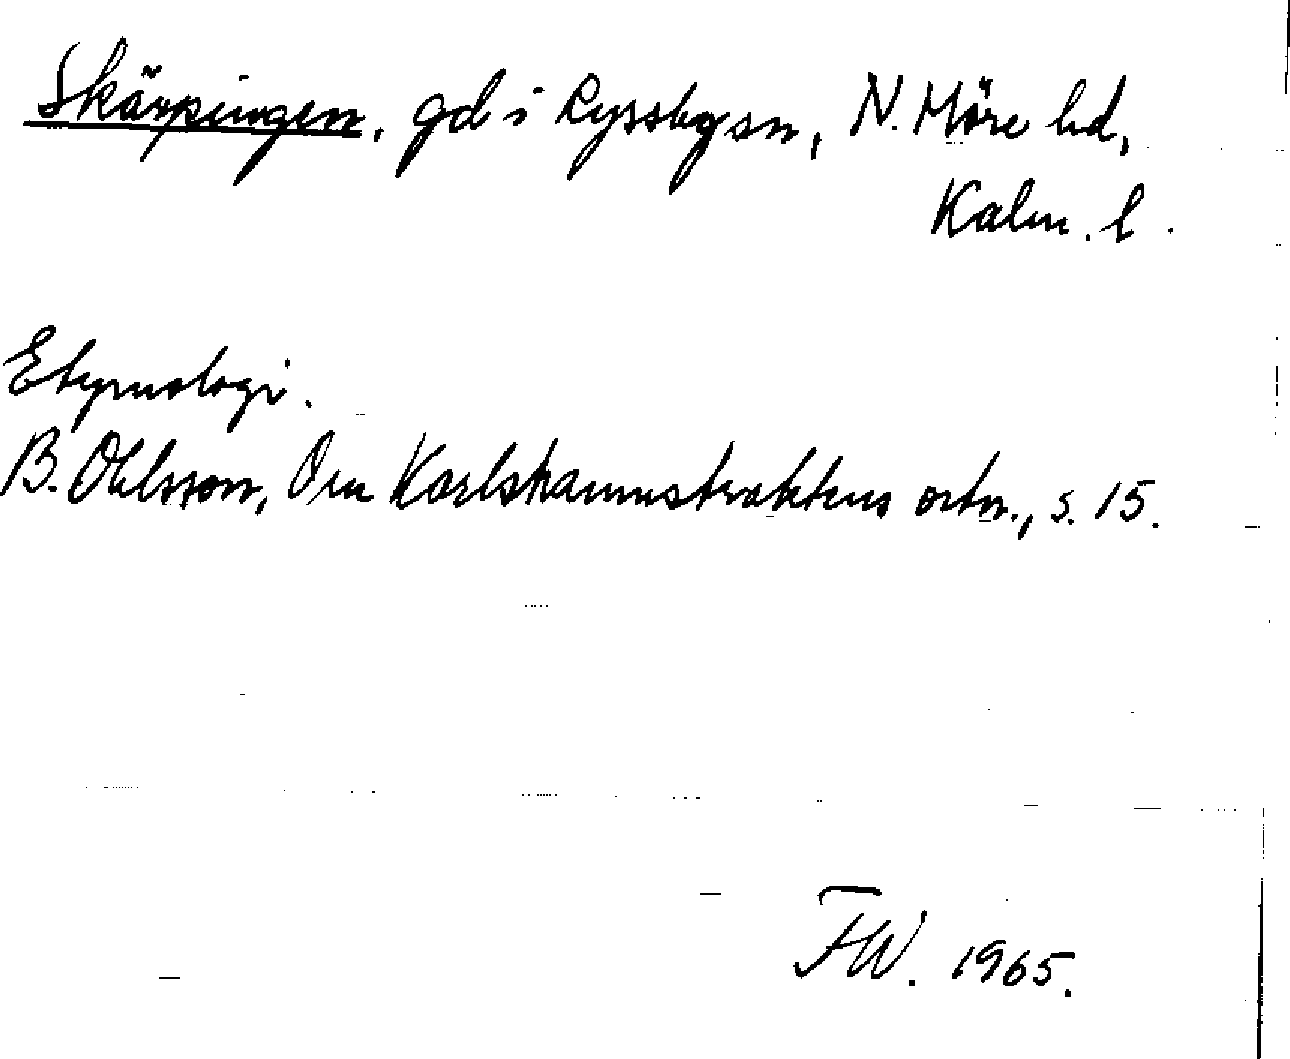 Skärpingen, gd i Ryssby sn, N. Möre hd,
Kalm. l.
Etymologi.
B. Ohlsson, Om Karlshamnstraktens ortn., s. 15.
FW. 1965.